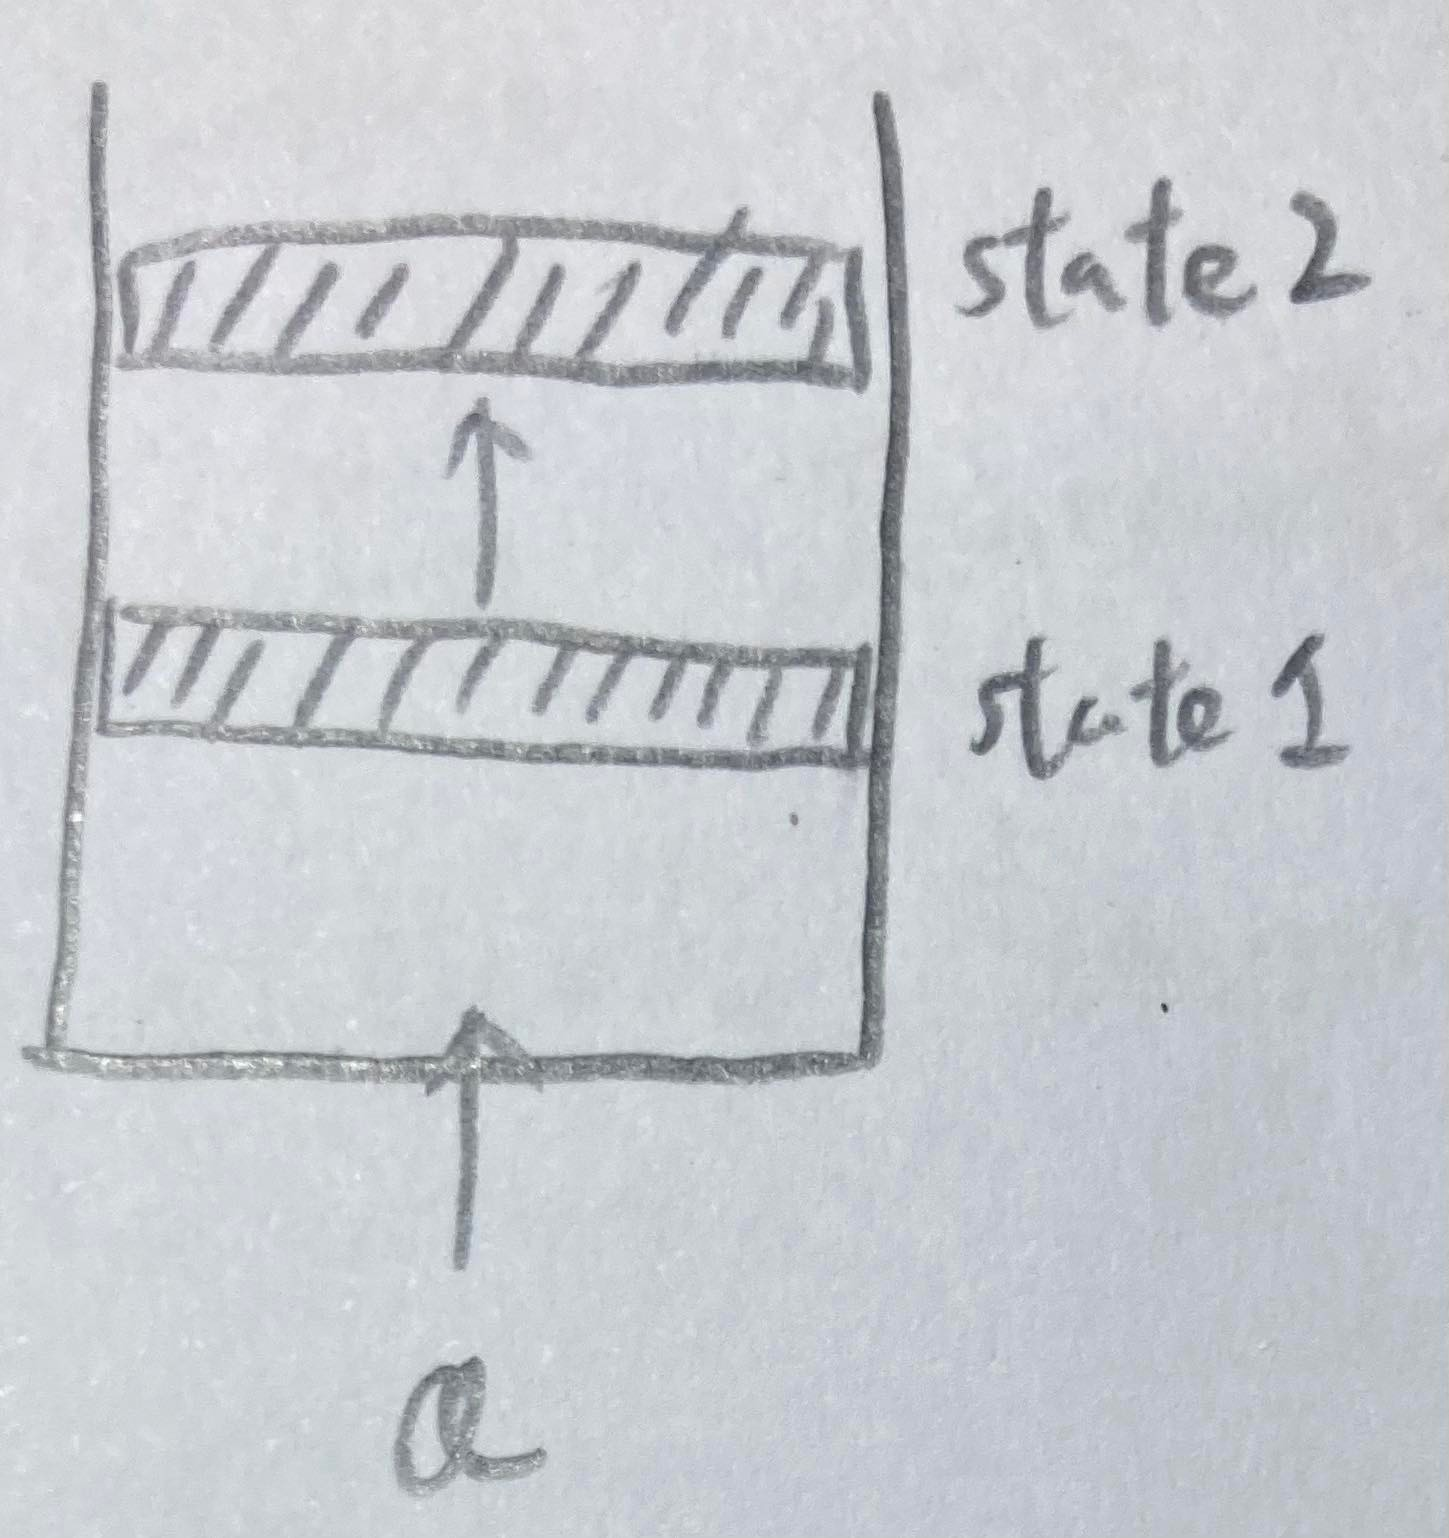 state 2
state 1
Q